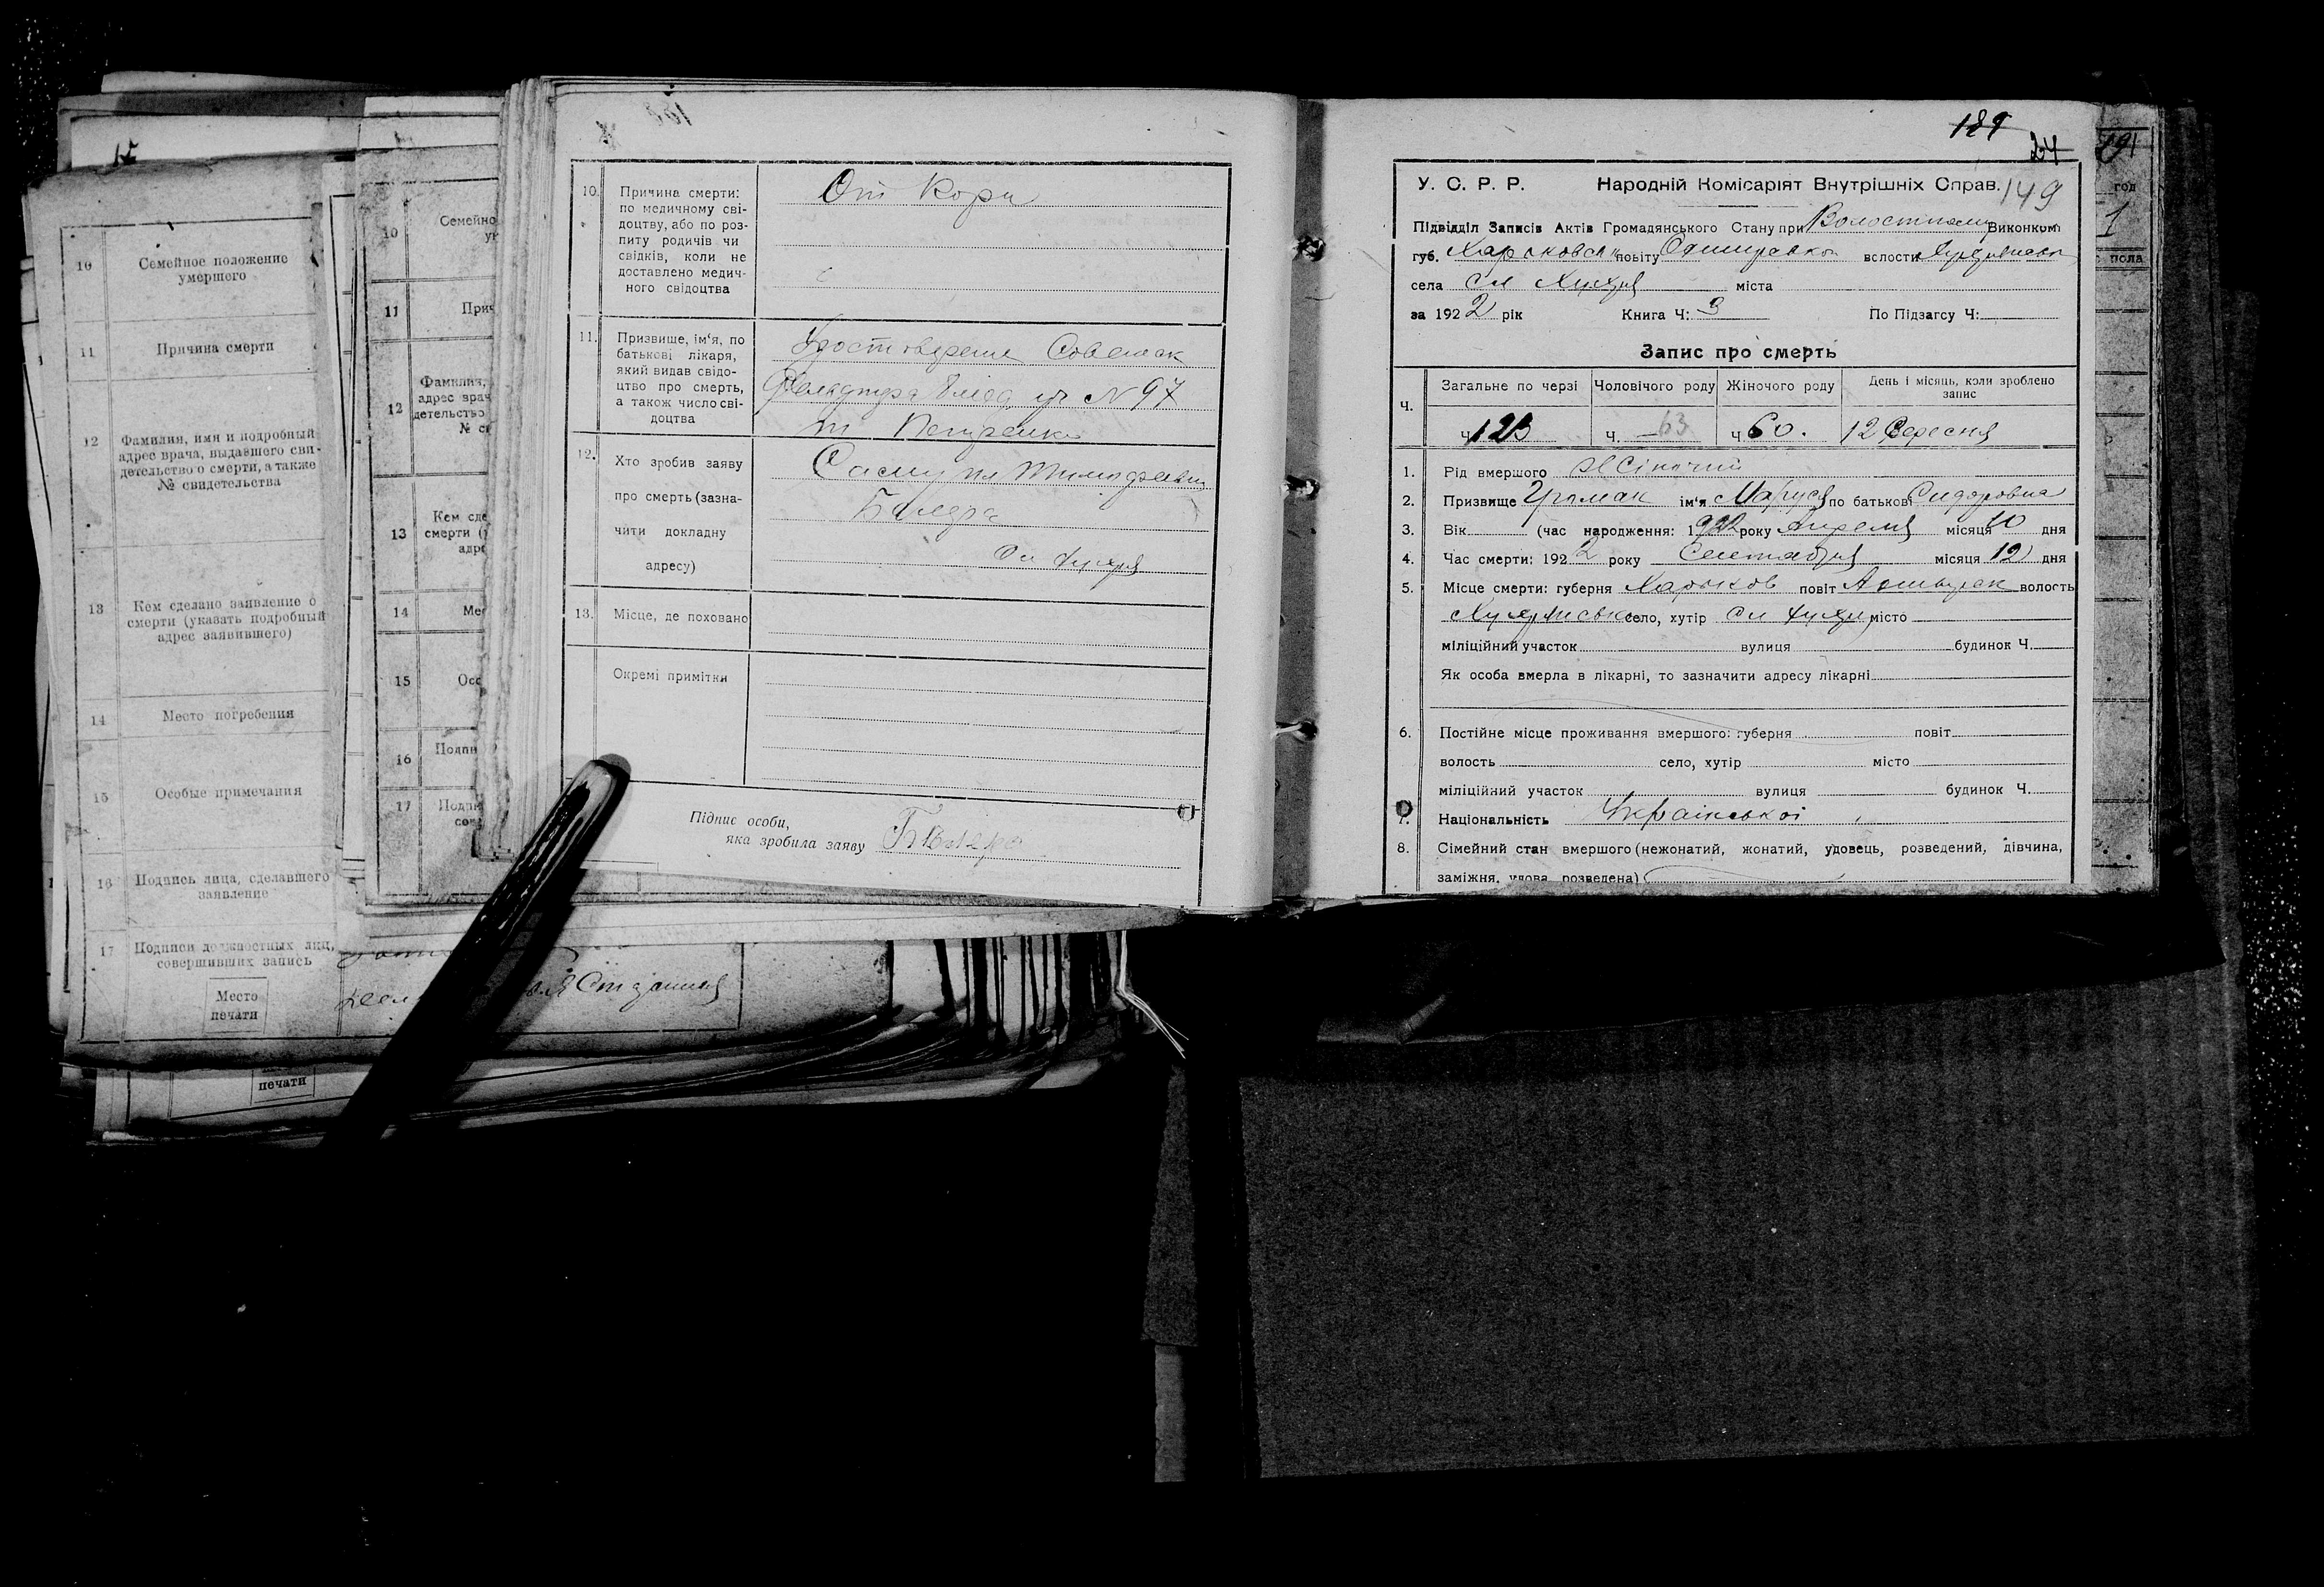 15
10 Семейное положение
умершего
11 Причина смерти
12 Фамилия, имя и подробный
адрес врача, выдавшего сви-
детельство о смерти, а также
№ свидетельства
13 Кем сделано заявление о
смерти (указать подробный
адрес заявившего)
14 Место погребения
15 Особые примечания
16 Подпись лица, сделавшего
заявление
17 Подписи должностных лиц,
совершивших запись
Место
печати
печати
10 Семейно
11 Прич
12 Фамилия,
адрес врач
детельство
№ с
13 Кем сде
смерти (
адр
14 Ме
15 Осо
16 Подпи
17 Подпи
со
188
10. Причина смерти:
по медичному сві-
доцтву, або по роз-
питу родичів чи
свідків, коли не
доставлено медич-
ного свідоцтва
От Кори
11. Призвище, ім'я, по
батькові лікаря,
який видав свідо-
цтво про смерть,
а також число сві-
доцтва
№ 97
12. Хто зробив заяву
про смерть (зазна-
чити докладну
адресу)
сл Хухря
13. Місце, де поховано
Окремі примітки
Підпис особи,
яка зробила заяву
189
24
У. С. Р. Р. Народній Комісаріят Внутрішніх Справ. 149
Підвідділ Записів Актів Громадянського Стану при Волостном Виконком
губ. Харьковськ повіту волости
села сл Хухря міста
за 1922 рік Книга Ч: 3 По Підзагсу Ч:
Запис про смерть
Ч. Загальне по черзі Чоловічого роду Жіночого роду День і місяць, коли зроблено
запис
Ч 123 Ч. — 63 Ч 60. 12 Вересня
1. Рід вмершого Жіночий
2. Призвище ім'я Маруся по батькові Сидоровна
3. Вік (час народження: 1922 року Апреля місяця 10 дня
4. Час смерти: 1922 року Сентября місяця 12 дня
5. Місце смерти: губерня Харьков повіт волость
село, хутір сл Хухря місто
міліційний участок вулиця будинок Ч.
Як особа вмерла в лікарні, то зазначити адресу лікарні
6. Постійне місце проживання вмершого: губерня повіт
волость село, хутір місто
міліційний участок вулиця будинок Ч.
7. Національність Української
8. Сімейний стан вмершого (нежонатий, жонатий, удовець, розведений, дівчина,
заміжня, удова, розведена)
191
год
1
пола